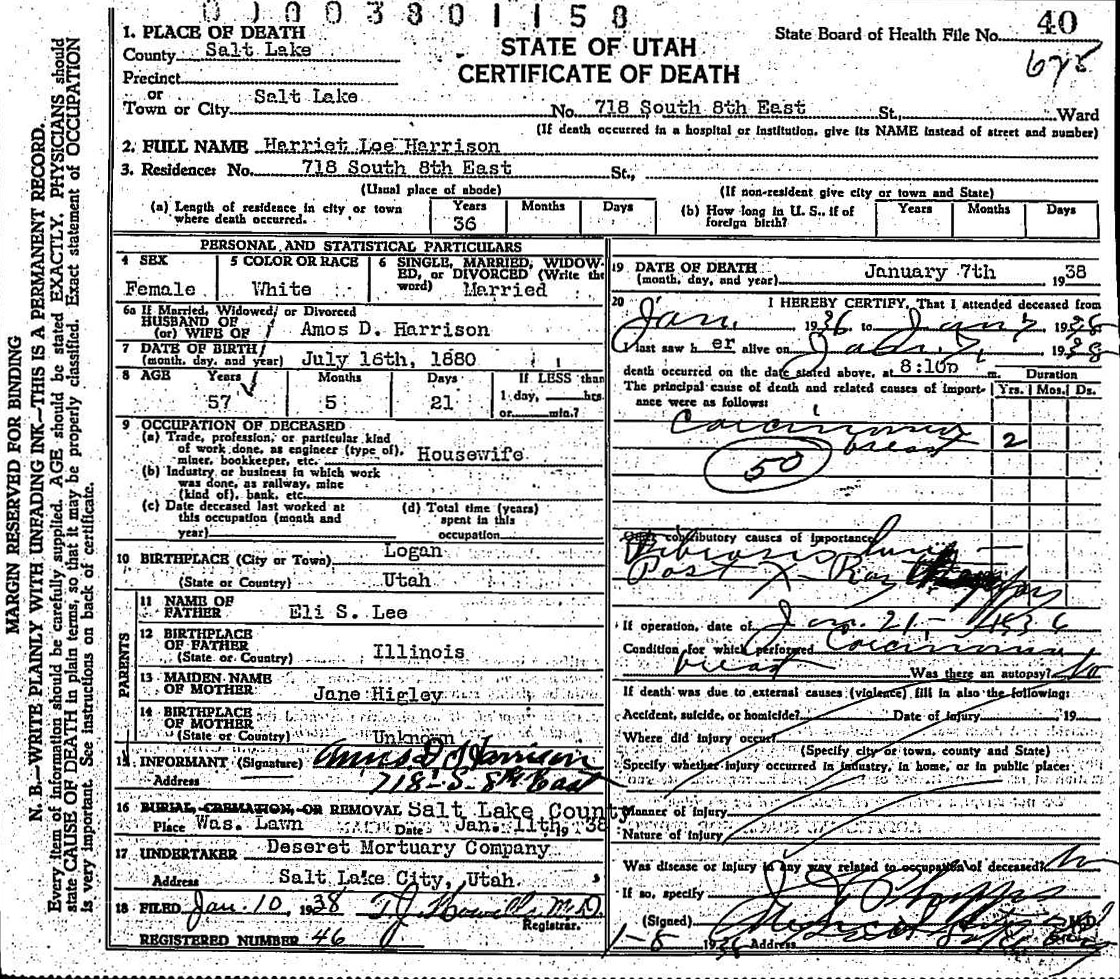 0 1 0 0 3 8 0 1 1 5 8
40
State Board of Health File No.
675
STATE OF UTAH
CERTIFICATE OF DEATH
1. PLACE OF DEATH
County Salt Lake
Precinct
or
Town or City Salt Lake No. 718 South 8th East St., Ward
(If death occurred in a hospital or institution, give its NAME instead of street and number)
2. FULL NAME Harriet Loe Harrison
3. Residence: No. 718 South 8th East St.,
(Usual place of abode) (If non-resident give city or town and State)
(a) Length of residence in city or town where death occurred. Years 36 Months Days
(b) How long in U. S., if of foreign birth? Years Months Days
PERSONAL AND STATISTICAL PARTICULARS
4 SEX Female
5 COLOR OR RACE White
6 SINGLE, MARRIED, WIDOWED, or DIVORCED (Write the word) Married
6a If Married, Widowed, or Divorced
HUSBAND OF
(or) WIFE OF Amos D. Harrison
7 DATE OF BIRTH
(month, day, and year) July 16th, 1880
8 AGE Years 57 Months 5 Days 21
If LESS than
1 day, hrs.
or min.?
9 OCCUPATION OF DECEASED
(a) Trade, profession, or particular kind
of work done, as engineer (type of),
miner, bookkeeper, etc. Housewife
(b) Industry or business in which work
was done, as railway, mine
(kind of), bank, etc.
(c) Date deceased last worked at
this occupation (month and
year)
(d) Total time (years)
spent in this
occupation
10 BIRTHPLACE (City or Town) Logan
(State or Country) Utah
PARENTS
11 NAME OF
FATHER Eli S. Lee
12 BIRTHPLACE
OF FATHER
(State or Country) Illinois
13 MAIDEN NAME
OF MOTHER Jane Higley
14 BIRTHPLACE
OF MOTHER
(State or Country) Unknown
15 INFORMANT (Signature) Amos D Harrison
Address 718-S-8th East
16 BURIAL, CREMATION, OR REMOVAL Salt Lake County
Place Was. Lawn Date Jan. 11th, 19 38
17 UNDERTAKER Deseret Mortuary Company
Address Salt Lake City, Utah.
18 FILED Jan. 10, 1938 T.J. Howells M.D.
Registrar.
REGISTERED NUMBER 46
19 DATE OF DEATH
(month, day, and year) January 7th 1938
20 I HEREBY CERTIFY, That I attended deceased from
Jan. 1936 to Jan 7 1938
I last saw her alive on Jan. 7, 1938
death occurred on the date stated above, at 8:10p m.
Duration
The principal cause of death and related causes of importance were as follows:
Yrs. Mos. Ds.
Carcinoma
breast 2
50
Other contributory causes of importance
Fibrosis lung -
Post X-Ray therapy
If operation, date of Jan. 21 - 1936
Condition for which performed Carcinoma
breast Was there an autopsy? No
If death was due to external causes (violence) fill in also the following:
Accident, suicide, or homicide? Date of injury 19
Where did injury occur?
(Specify city or town, county and State)
Specify whether injury occurred in industry, in home, or in public place:
Manner of injury
Nature of injury
Was disease or injury in any way related to occupation of deceased? No
If so, specify
(Signed) M.D.
1-8 19 Address
MARGIN RESERVED FOR BINDING
N. B.—WRITE PLAINLY WITH UNFADING INK—THIS IS A PERMANENT RECORD.
Every item of information should be carefully supplied. AGE should be stated EXACTLY. PHYSICIANS should
state CAUSE OF DEATH in plain terms, so that it may be properly classified. Exact statement of OCCUPATION
is very important. See instructions on back of certificate.